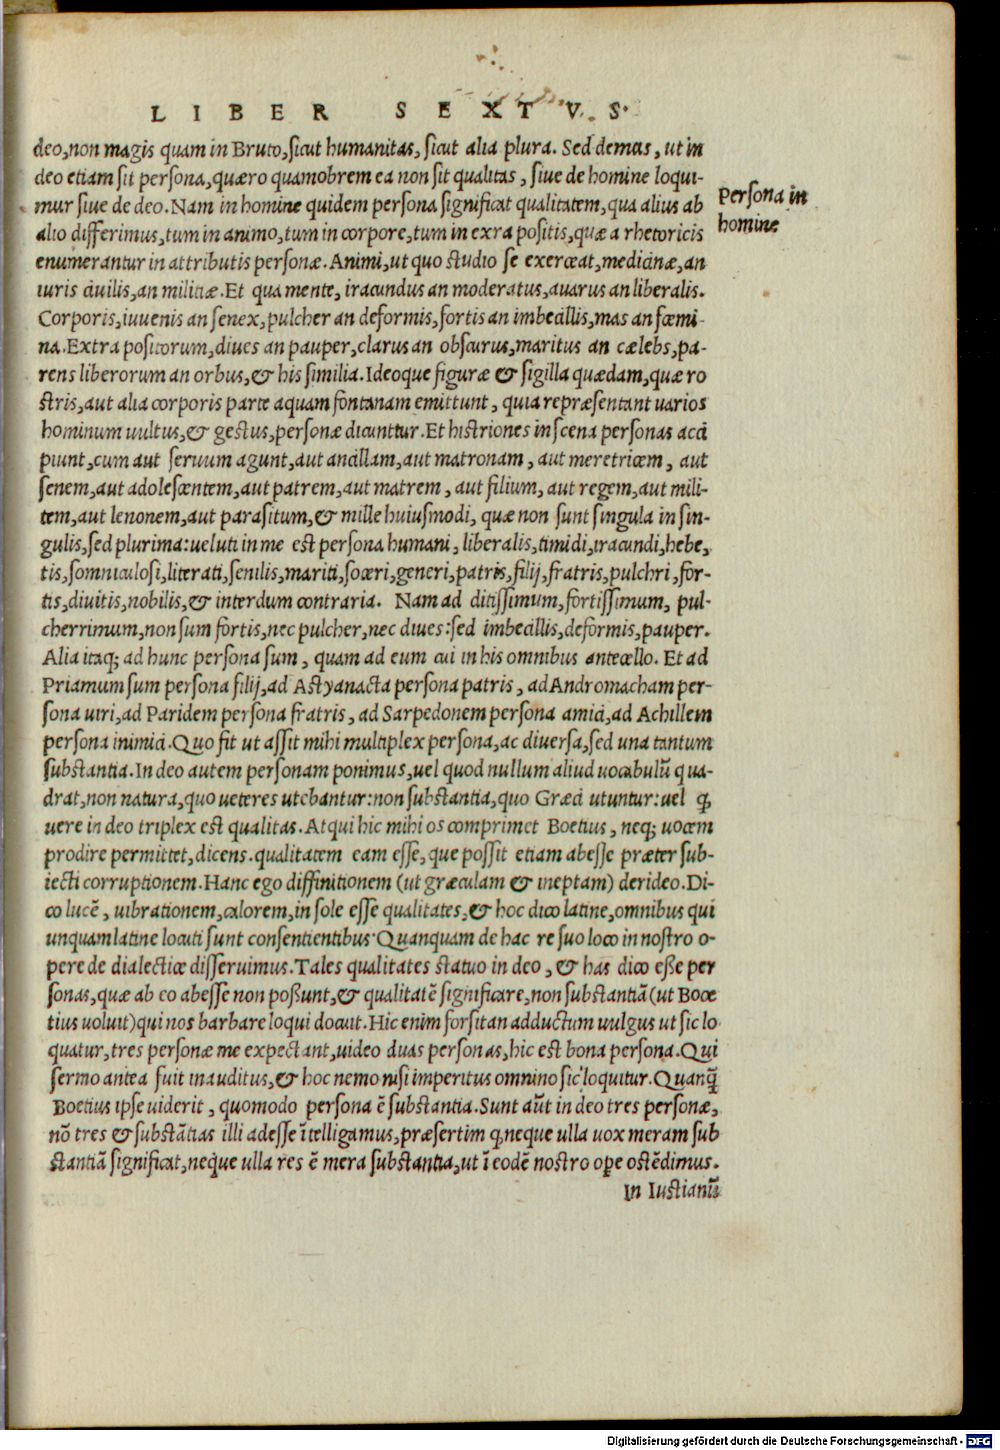 LIBER SEXTVS.
deo,non magis quam in Bruto,ſicut humanitas, ſicut alia plura. Sed demus, ut in
deo etiam ſit perſona,quæro quamobrem ea non ſit qualitas, ſiue de homine loqui-
mur ſiue de deo. Nam in homine quidem perſona ſignificat qualitatem,qua alius ab
Perſona in
alio differimus,tum in animo,tum in corpore,tum in exra poſitis,quæ a rhetoricis
homine
enumerantur in attributis perſonæ. Animi,ut quo ſtudio ſe exerceat,medicinæ,an
iuris ciuilis,an militiæ. Et qua mente, iracundus an moderatus,auarus an liberalis.
Corporis,iuuenis an ſenex,pulcher an deformis,fortis an imbecillis,mas an fœmi-
na. Extra poſitorum,diues an pauper,clarus an obſcurus,maritus an cælebs,pa-
rens liberorum an orbus,& his ſimilia. Ideoque figuræ & ſigilla quædam,quæ ro
ſtris,aut alia corporis parte aquam fontanam emittunt, quia repræſentant uarios
hominum uultus,& geſtus,perſonæ dicunttur. Et hiſtriones in ſcena perſonas acci
piunt,cum aut ſeruum agunt,aut ancillam,aut matronam, aut meretricem, aut
ſenem,aut adoleſcentem,aut patrem,aut matrem, aut filium, aut regem,aut mili-
tem,aut lenonem,aut paraſitum,& mille huiuſmodi, quæ non ſunt ſingula in ſin-
gulis,ſed plurima:ueluti in me eſt perſona humani, liberalis,timidi,iracundi,hebe-
tis,ſomniculoſi,literati,ſenilis,mariti,ſoceri,generi,patris,filij,fratris,pulchri,for-
tis,diuitis,nobilis,& interdum contraria. Nam ad ditiſſimum,fortiſſimum, pul-
cherrimum,non ſum fortis,nec pulcher,nec diues:ſed imbecillis,deformis,pauper.
Alia itaq; ad hunc perſona ſum, quam ad eum cui in his omnibus antecello. Et ad
Priamum ſum perſona filij,ad Aſtyanacta perſona patris, ad Andromacham per-
ſona uiri,ad Paridem perſona fratris, ad Sarpedonem perſona amici,ad Achillem
perſona inimici. Quo fit ut aſſit mihi multiplex perſona,ac diuerſa,ſed una tantum
ſubſtantia. In deo autem perſonam ponimus,uel quod nullum aliud uocabulū qua-
drat,non natura,quo ueteres utebantur:non ſubſtantia,quo Græci utuntur:uel ꝙ
uere in deo triplex eſt qualitas. Atqui hic mihi os comprimet Boetius, neq; uocem
prodire permittet,dicens.qualitatem eam eſſe, que poſſit etiam abeſſe præter ſub-
iecti corruptionem. Hanc ego diffinitionem (ut græculam & ineptam) derideo. Di-
co lucē, uibrationem,calorem,in ſole eſſe qualitates,& hoc dico latine,omnibus qui
unquam latine locuti ſunt conſentientibus. Quanquam de hac re ſuo loco in noſtro o-
pere de dialectica diſſeruimus. Tales qualitates ſtatuo in deo, & has dico eße per
ſonas,quæ ab eo abeſſe non poßunt,& qualitatē ſignificare,non ſubſtantiā(ut Boe
tius uoluit)qui nos barbare loqui docuit. Hic enim forſitan adductum uulgus ut ſic lo
quatur,tres perſonæ me expectant,uideo duas perſonas,hic eſt bona perſona. Qui
ſermo antea fuit inauditus,& hoc nemo niſi imperitus omnino ſic loquitur. Quanq̄
Boetius ipſe uiderit, quomodo perſona ē ſubſtantia. Sunt aūt in deo tres perſonæ,
nō tres & ſubſtātias illi adeſſe ītelligamus,præſertim ꝙ neque ulla uox meram ſub
ſtantiā ſignificat,neque ulla res ē mera ſubſtantia,ut ī eodē noſtro oꝑe oſtēdimus.
In Iuſtianū
Digitalisierung gefördert durch die Deutsche Forschungsgemeinschaft - DFG